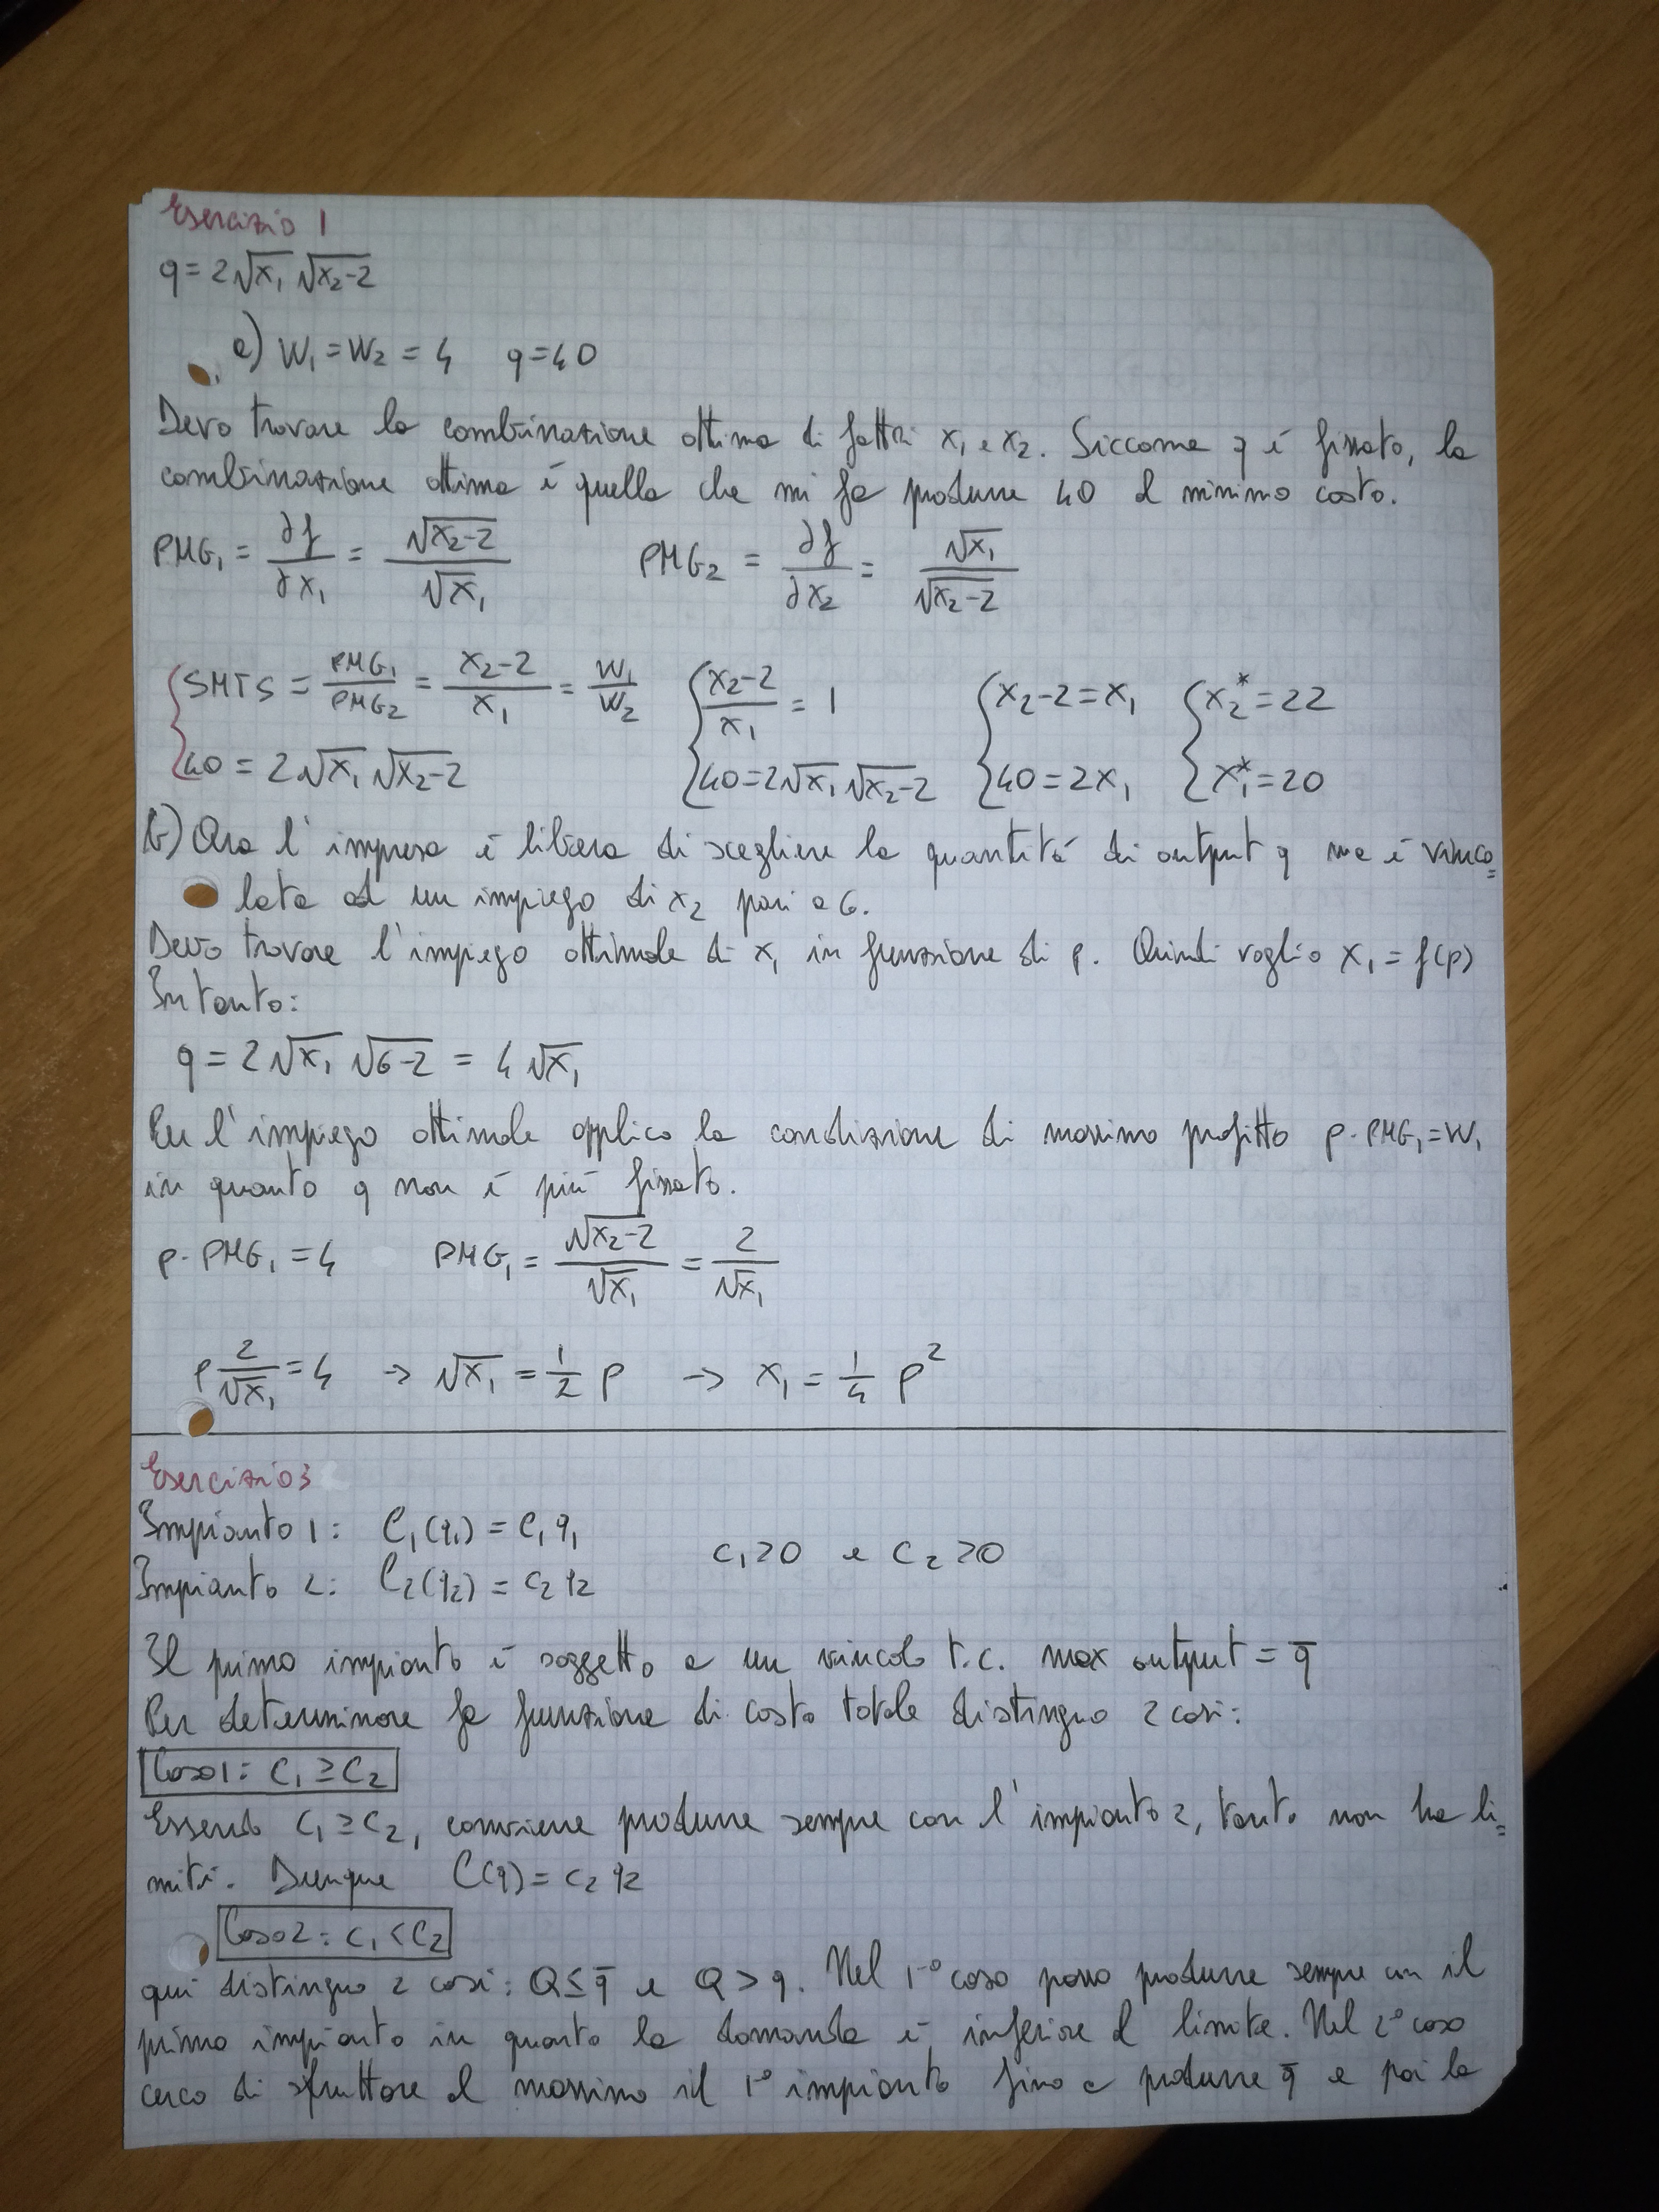 Esercizio 1
q = 2√x₁ √x₂-2
a) W₁ = W₂ = 4 q = 40
Devo trovare la combinazione ottima di fattori x₁ e x₂. Siccome q è fissato, la
combinazione ottima è quella che mi fa produrre 40 al minimo costo.
PMG₁ = ∂f/∂x₁ = √x₂-2/√x₁ PMG₂ = ∂f/∂x₂ = √x₁/√x₂-2
{SMTS = PMG₁/PMG₂ = x₂-2/x₁ = W₁/W₂ {x₂-2/x₁ = 1 {x₂-2 = x₁ {x₂* = 22
{40 = 2√x₁ √x₂-2 {40 = 2√x₁ √x₂-2 {40 = 2x₁ {x₁* = 20
b) Ora l'impresa è libera di scegliere la quantità di output q ma è vinco=
lata ad un impiego di x₂ pari a 6.
Devo trovare l'impiego ottimale di x₁ in funzione di p. Quindi voglio x₁ = f(p)
Intanto:
q = 2√x₁ √6-2 = 4√x₁
Per l'impiego ottimale applico la condizione di massimo profitto p·PMG₁ = W₁
in quanto q non è più fissato.
p·PMG₁ = 4 PMG₁ = √x₂-2/√x₁ = 2/√x₁
p 2/√x₁ = 4 → √x₁ = 1/2 p → x₁ = 1/4 p²
Esercizio 3
Impianto 1: C₁(q₁) = c₁q₁
c₁>0 e c₂>0
Impianto 2: C₂(q₂) = c₂q₂
Il primo impianto è soggetto a un vincolo t.c. max output = q̅
Per determinare la funzione di costo totale distinguo 2 casi:
Caso 1: c₁ ≥ c₂
Essendo c₁ ≥ c₂, conviene produrre sempre con l'impianto 2, tanto non ha li=
miti. Dunque C(q) = c₂q₂
Caso 2: c₁ < c₂
qui distinguo 2 casi: Q ≤ q̅ e Q > q. Nel 1° caso posso produrre sempre con il
primo impianto in quanto la domanda è inferiore al limite. Nel 2° caso
cerco di sfruttare al massimo il 1° impianto fino a produrre q̅ e poi la